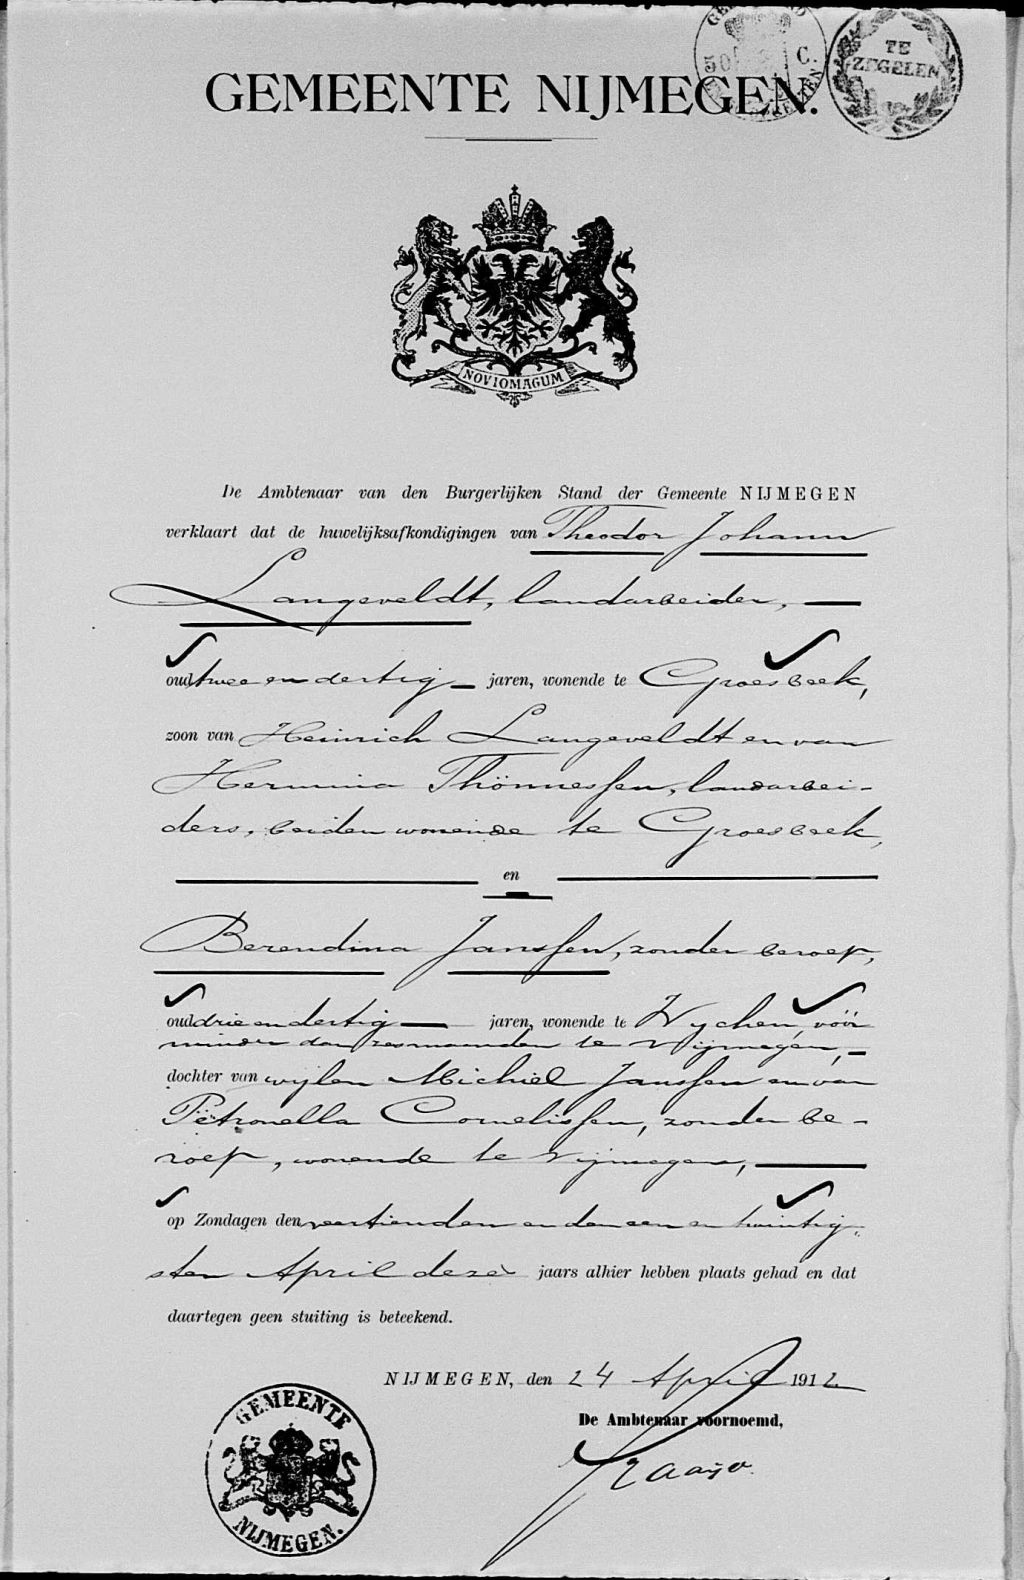 TE
ZEGELEN
30 C.
GEMEENTE NIJMEGEN.
NOVIOMAGUM
De Ambtenaar van den Burgerlijken Stand der Gemeente NIJMEGEN
verklaart dat de huwelijksafkondigingen van Theodor Johann
Langeveldt, landarbeider,
oud twee en dertig jaren, wonende te Groesbeek,
zoon van Heinrich Langeveldt en van
Hermina Thönnessen, landarbei-
ders, beiden wonende te Groesbeek,
en
Berendina Janssen, zonder beroep,
oud drie en dertig jaren, wonende te Wychen, vóór
minder dan zes maanden te Nijmegen,
dochter van wijlen Michiel Janssen en van
Petronella Cornelissen, zonder be-
roep, wonende te Nijmegen,
op Zondagen den veertienden en den een en twintig-
sten April dezes jaars alhier hebben plaats gehad en dat
daartegen geen stuiting is beteekend.
NIJMEGEN, den 24 April 1912
De Ambtenaar voornoemd,
GEMEENTE
NIJMEGEN.